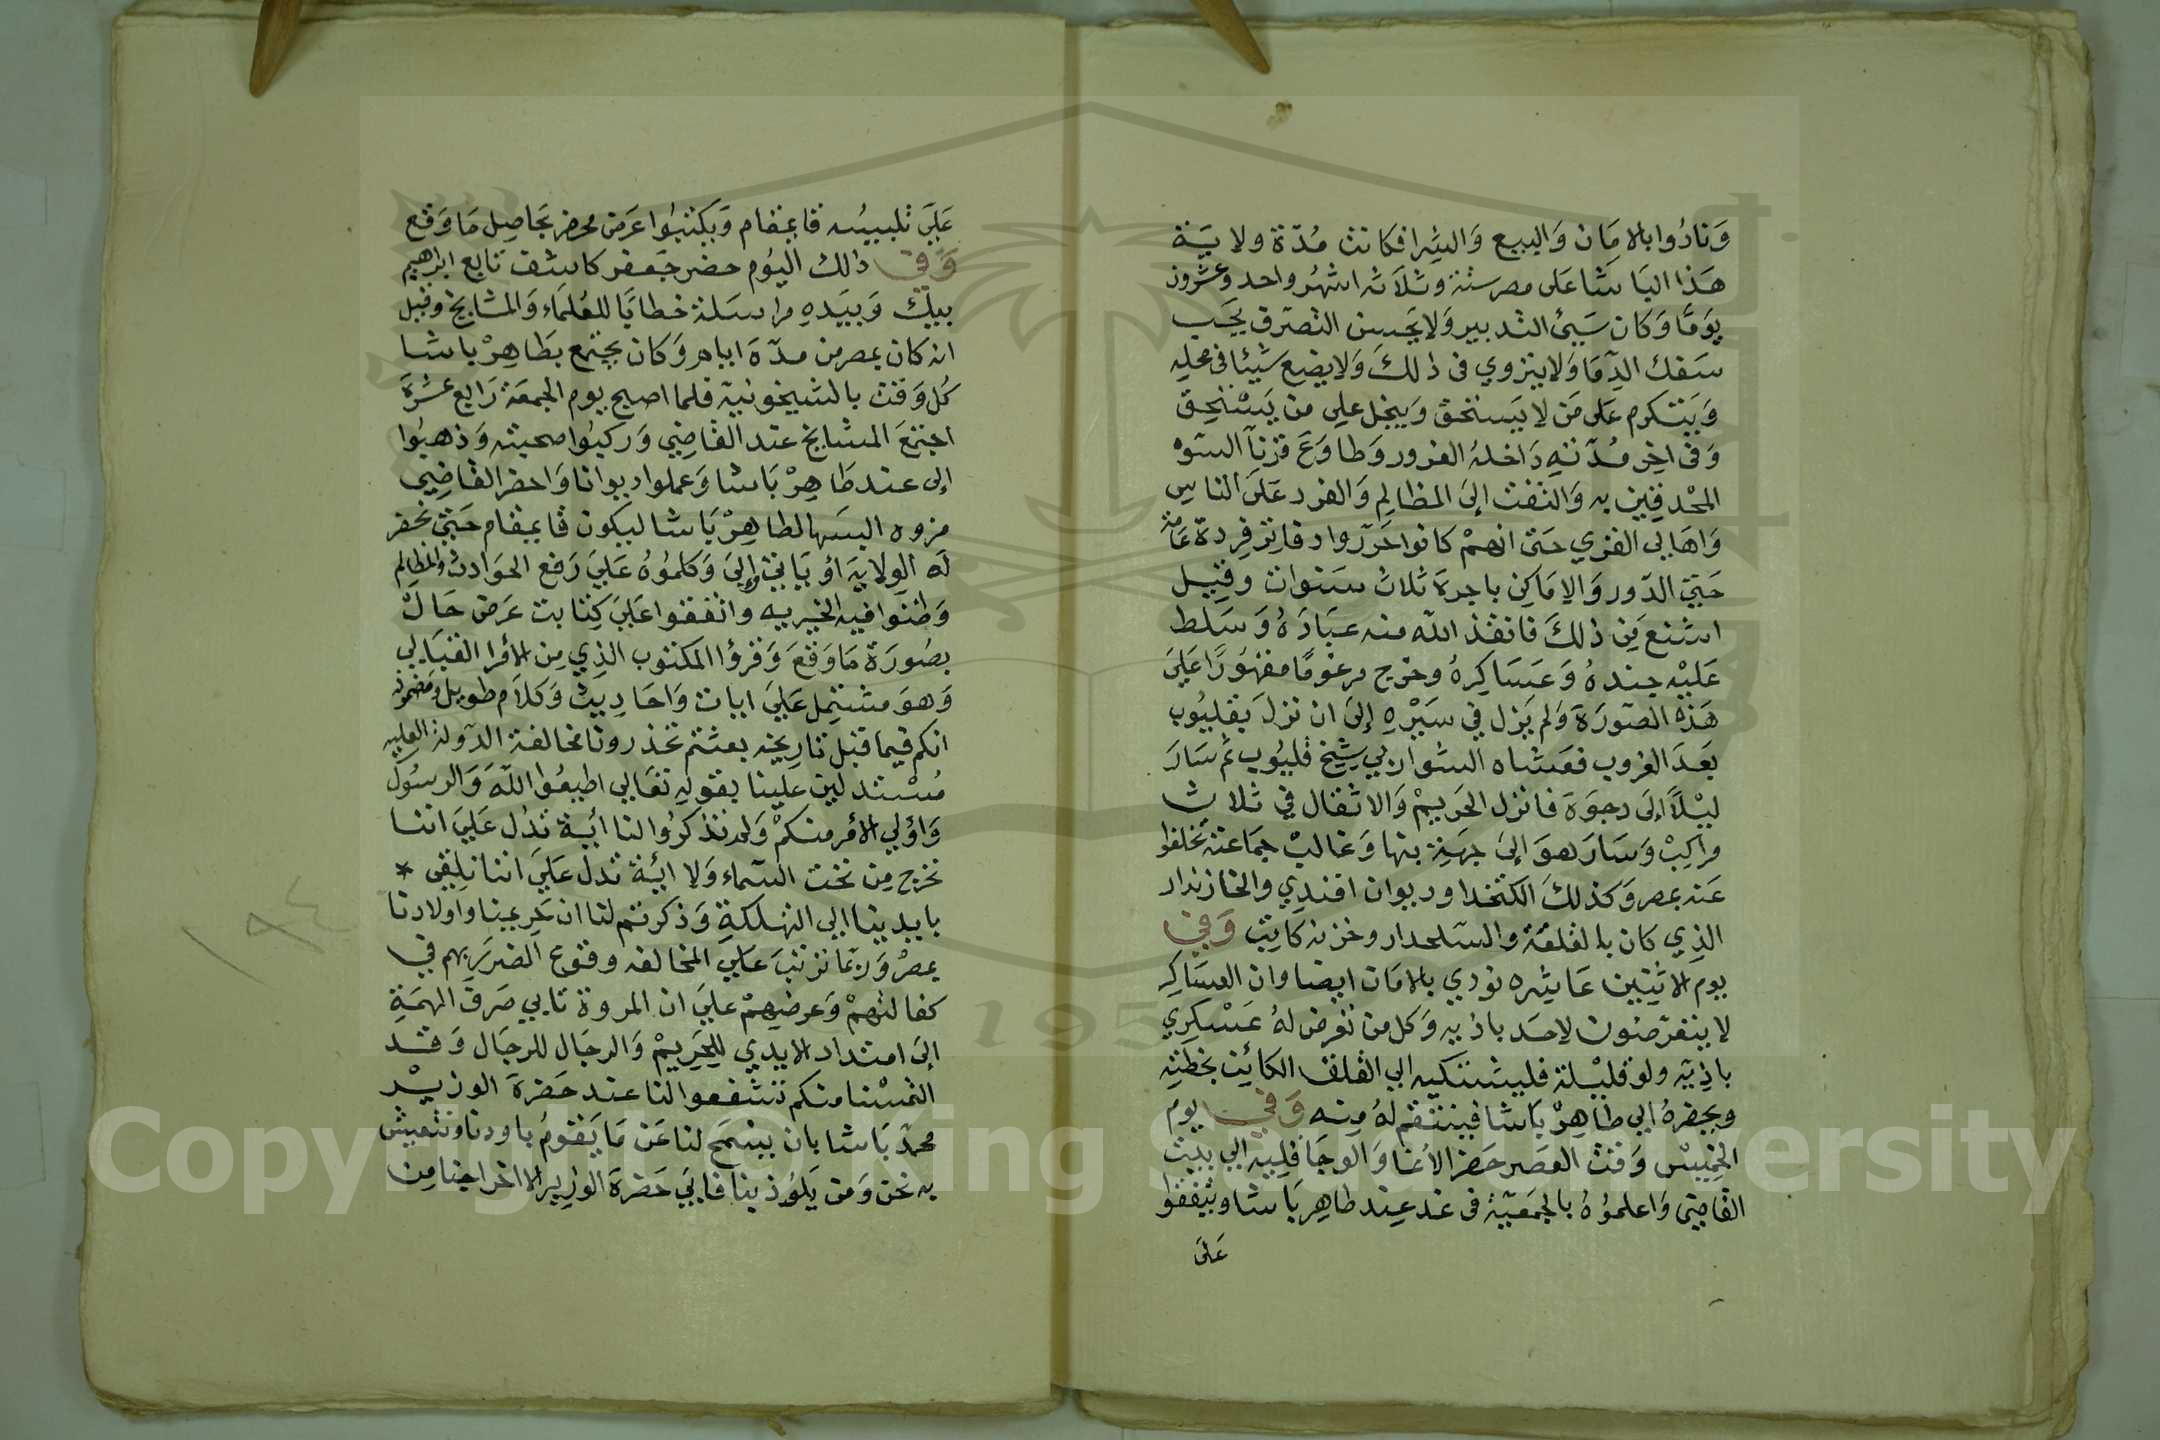 وَنادُوا بالامَان وَالبيع وَالشِرا فكانت مُدّة ولايَة
هَذا البَاشَا عَلى مصر سنة وثلاثة اشهُر واحد وعشرون
يَومًا وَكان سَيئ التدبير وَلا يحَسن التصرّف يحَب
سَفك الدِّمَا وَلا يتروي في ذلكَ وَلا يضع شيئا في محله
وَيَتكرم عَلى مَن لا يَستحق وَيبخل علي من يَسْتَحِق
وَفى اخِر مُدّتهِ دَاخلهُ الغرور وَطاوَعَ قرنآ السّوْء
المحْدقين به وَالتفت إلىَ المظالم وَالفرد عَلىَ الناس
وَاهَالي القري حَتى انهمْ كانوا حَرّروا دفاتر فِردة عَامة
حَتيّ الدّور وَالامَاكِن باجرة ثلاث سَنوات وقيل
اشنع مِن ذلكَ فانقذ الله منه عبَادَهُ وَسَلط
عَليْه جندهُ وَعَسَاكِرهُ وخرج مرغومًا مقهُورًا عَليَ
هَذه الصّورَة وَلم يَزل في سَيْرهِ إلىَ ان نزلَ بقليُوب
بَعدَ الغروب فعَشاه الشواربي شيخ قليُوب ثم سَارَ
ليْلاً إلىَ دجوَة فانزل الحَريمْ وَالاثقال في ثلاث
مراكِبْ وَسَارَ هوَ إلىَ جهَة بنها وَغالبْ جمَاعته تخلفوا
عَنه بمصر وَكذلكَ الكتخدا وديوان افندي والخازندار
الذي كان بالقلعَة والسّلحدار وخزنه كاتب وَفي
يوم الاثنين عَاشِره نودي بالامَان ايضا وان العسَاكِر
لا يتعَرّضون لاحَد باذيه وَكل من تعَرض لهُ عَسْكري
باذِيّه ولو قليْلة فليشتكيه الي القلق الكائِن بخطته
ويحضرهُ الي طاهِرْ بَاشا فينتقم لهُ مِنه وَفي يوم
الخميسْ وَقت العصَر حَضر الاغا وَالوجَاقليه الي بيت
القاضِي وَاعلموُهُ بالجمعَيّة في غد عِند طاهِر بَاشا ويتفقوا
عَلىَ
عَليَ تلبيسُه قايمقام وَيكتبُوا عَرض محضر بحَاصِل مَا وَقع
وَفي ذلك اليُوم حضر جَعفر كاشف تابع ابراهيم
بيك وَبيَدهِ مراسَلة خطابًا للعُلمَاء وَالمشايخ وقيل
انه كان بمصر من مدّة ايام وَكان يجتمع بطَاهِرْ باشا
كُل وَقت بالشيخونيّة فلما اصبح يوم الجمعَة رَابع عشرَهَ
اجتمعَ المشايخ عند القاضِي وَركبُوا صحبته وَذهبُوا
إلى عند طَاهِرْ بَاشا وَعملوا ديوانا وَاحضر القاضِي
فروه البسَها لطاهِرْ بَاشا ليكون قايمقام حَتيّ تحضر
لهَ الولايَه اوُ يَاتي وإلىَ وَكلموُهُ عَليَ رَفع الحوَادث والمظالم
وَظنّوا فيه الخيريه واتفقوا عَليَ كِتابت عَرض حَال
بصُورَة مَا وَقعَ وَقرؤا المكتوب الذِي مِن الأمرا القبَالي
وَهوَ مشتمِل عَليَ ايات وَاحَاديث وَكلاَم طويل ومَضمونه
انكم فيما قبل تاريخه بعثتم تحذرونا مخالفة الدّولة العليه
مُسْتدلين علينا بقولهِ تعَالي اطيعُوا اللهَ وَالرسُول
وَاؤلي الأمر منكمْ وَلم تذكرُوا لنا أيَة تدُل عَليَ اننا
نخرج مِن تحت السّماء وَلا ايَة تدل عَليَ اننا نلِقي *
بايدينا الي التهلكةِ وَذكرتم لنا ان حَريمنا واولادنا
بمصرْ وَرُبمّا ترتبَ عَليَ المخالفه وقوع الضرَر بهم في
كفالتهمْ وَعرضِهمْ عليَ ان المروة تابي صَرف الهمَةِ
إلىَ امتداد الايدي للِحَريمْ وَالرجَال للرجَال وَقد
التمسْنا منكم تتشفعوا لنا عند حَضرَة الوزيرْ
محمدّ بَاشا بان يسْمَح لنا عَن مَا يَقومُ باودنا ونتعيش
به نحن وَمن يَلوُذ بنا فابيَ حَضرَة الوزِير الا اخراجنا مِن
١٨٤
Copyright © King Saud University
195